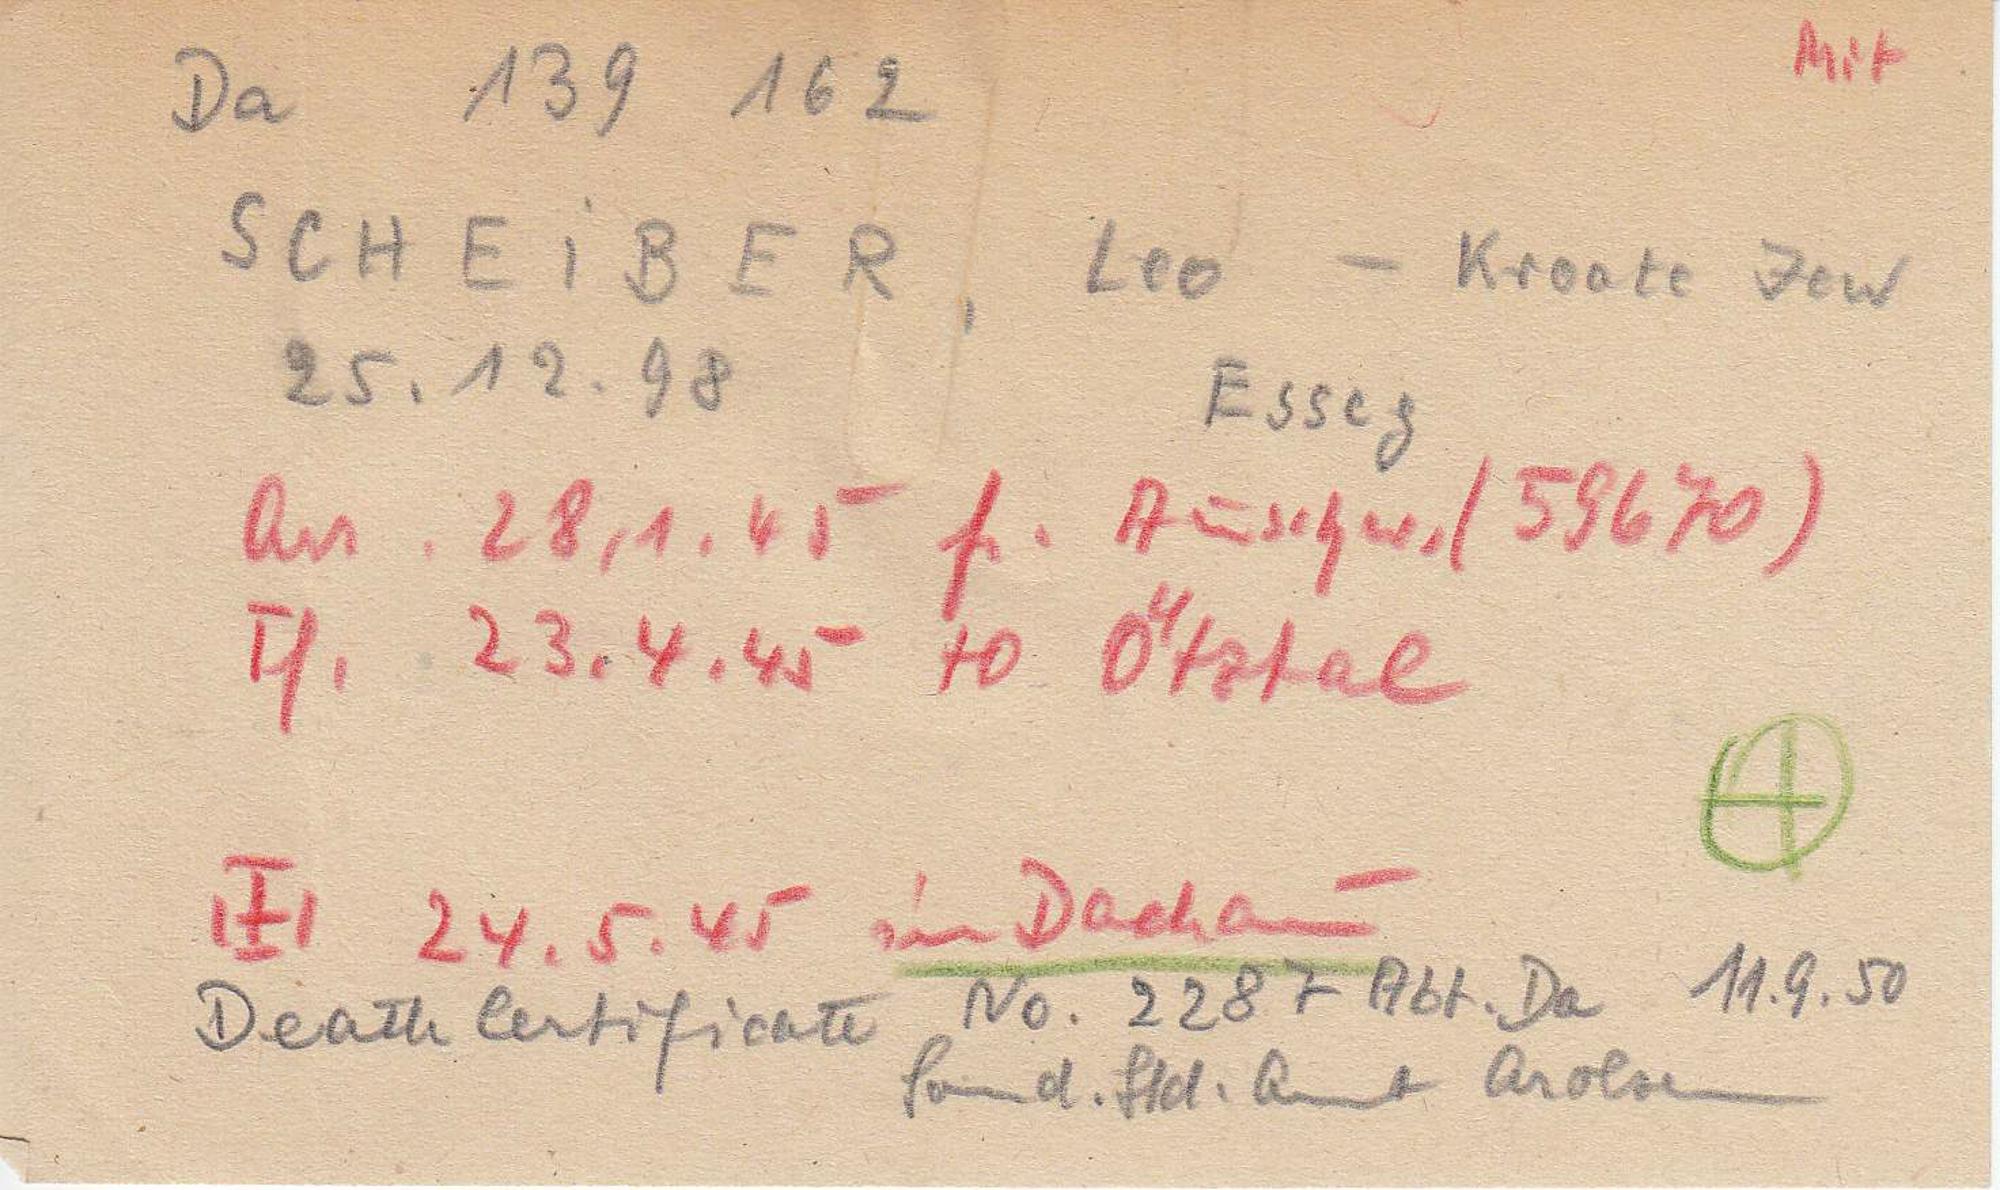 Da 139 162 Mit
SCHEiBER, Leo – Kroate Jew
25.12.98 Esseg
Arr. 28.1.45 fr. Auschw. (59670)
Tf. 23.4.45 to Ötztal
24.5.45 in Dachau
Death Certificate No. 2287 Abt. Da 11.9.50
Sond. Std. Amt Arolsen